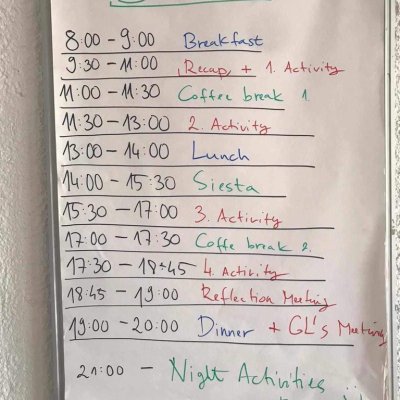 8:00 - 9:00 Breakfast
9:30 - 11:00 "Recap" + 1. Activity
11:00 - 11:30 Coffee break 1.
11:30 - 13:00 2. Activity
13:00 - 14:00 Lunch
14:00 - 15:30 Siesta
15:30 - 17:00 3. Activity
17:00 - 17:30 Coffe break 2.
17:30 - 18:45 4. Activity
18:45 - 19:00 Reflection Meeting
19:00 - 20:00 Dinner + GL's Meeting
21:00 - Night Activities